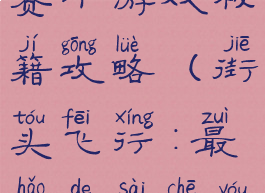 游戏
jí gōng lüè jiē
籍攻略（街
tóu fēi xíng zuì
头飞行：最
hǎo de sài chē yóu